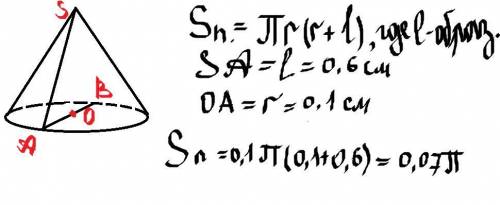 S
B
O
A
Sп = Пr(r+l), где l-образ.
SA = l = 0,6 см
OA = r = 0,1 см
Sп = 0,1П(0,1+0,6) = 0,07П